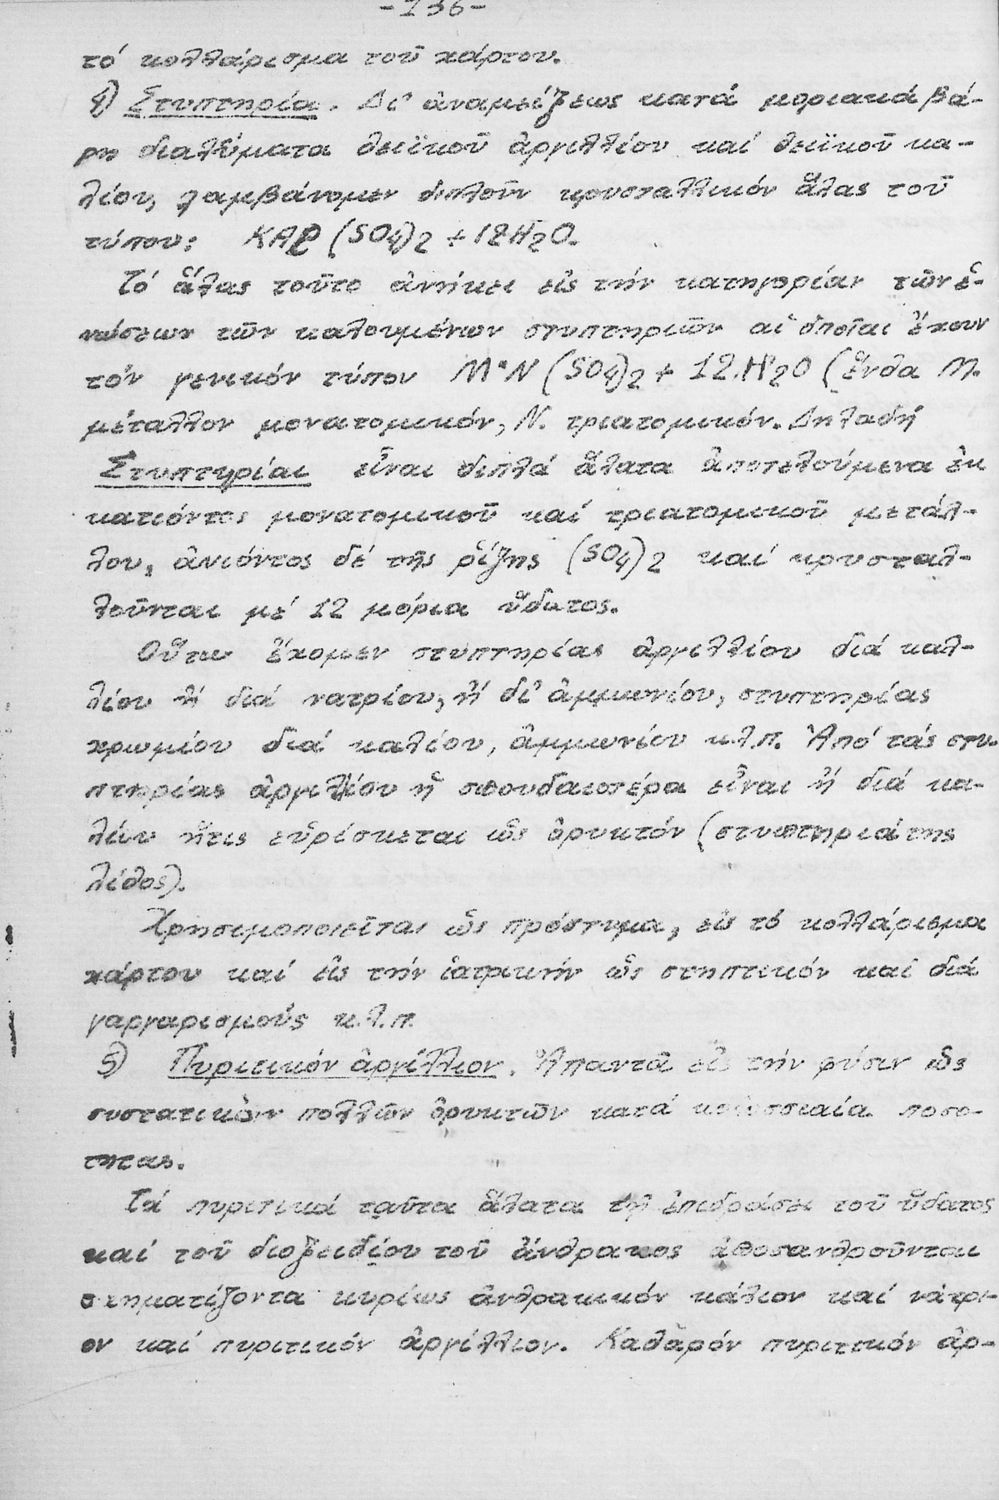 -136-
τό κολλάρισμα τοῦ χάρτου.
4) Στυπτηρία. Δι' ἀναμείξεως κατά μοριακά βά-
ρη διαλύματα θειϊκοῦ ἀργιλλίου καί θειϊκοῦ κα-
λίου, λαμβάνομεν διπλοῦν κρυσταλλικόν ἅλας τοῦ
τύπου: KAl (SO4)2 + 12H2O.
Τό ἅλας τοῦτο ἀνήκει εἰς τήν κατηγορίαν τῶν ἑ-
νώσεων τῶν καλουμένων στυπτηριῶν αἱ ὁποῖαι ἔχουν
τόν γενικόν τύπον M·N (SO4)2 + 12.H2O (ἔνθα M.
μέταλλον μονατομικόν, N. τριατομικόν. Δηλαδή
Στυπτηρίαι εἶναι διπλά ἅλατα ἀποτελούμενα ἐκ
κατιόντος μονατομικοῦ καί τριατομικοῦ μετάλ-
λου, ἀνιόντος δέ τῆς ρίζης (SO4)2 καί κρυσταλ-
λοῦνται μέ 12 μόρια ὕδατος.
Οὕτω ἔχομεν στυπτηρίας ἀργιλλίου διά καλ-
λίου ἤ διά νατρίου, ἤ δι' ἀμμωνίου, στυπτηρίας
χρωμίου διά καλίου, ἀμμωνίου κ.λ.π. Ἀπό τάς στυ-
πτηρίας ἀργιλλίου ἡ σπουδαιοτέρα εἶναι ἡ διά κα-
λίου ἥτις εὑρίσκεται ὡς ὀρυκτόν (στυπτηριάτης
λίθος).
Χρησιμοποιεῖται ὡς πρόστυμα, εἰς τό κολλάρισμα
χάρτου καί εἰς τήν ἰατρικήν ὡς στηπτικόν καί διά
γαργαρισμούς κ.λ.π.
5) Πυριτικόν ἀργίλλιον. Ἀπαντᾶ εἰς τήν φύσιν ὡς
συστατικόν πολλῶν ὀρυκτῶν κατά κολοσσιαία ποσό-
τητας.
Τά πυριτικά ταῦτα ἅλατα τῇ ἐπιδράσει τοῦ ὕδατος
καί τοῦ διοξειδίου τοῦ ἄνθρακος ἀποσανθροῦνται
σχηματίζοντα κυρίως ἀνθρακικόν κάλιον καί νάτρι-
ον καί πυριτικόν ἀργίλλιον. Καθαρόν πυριτικόν ἀρ-